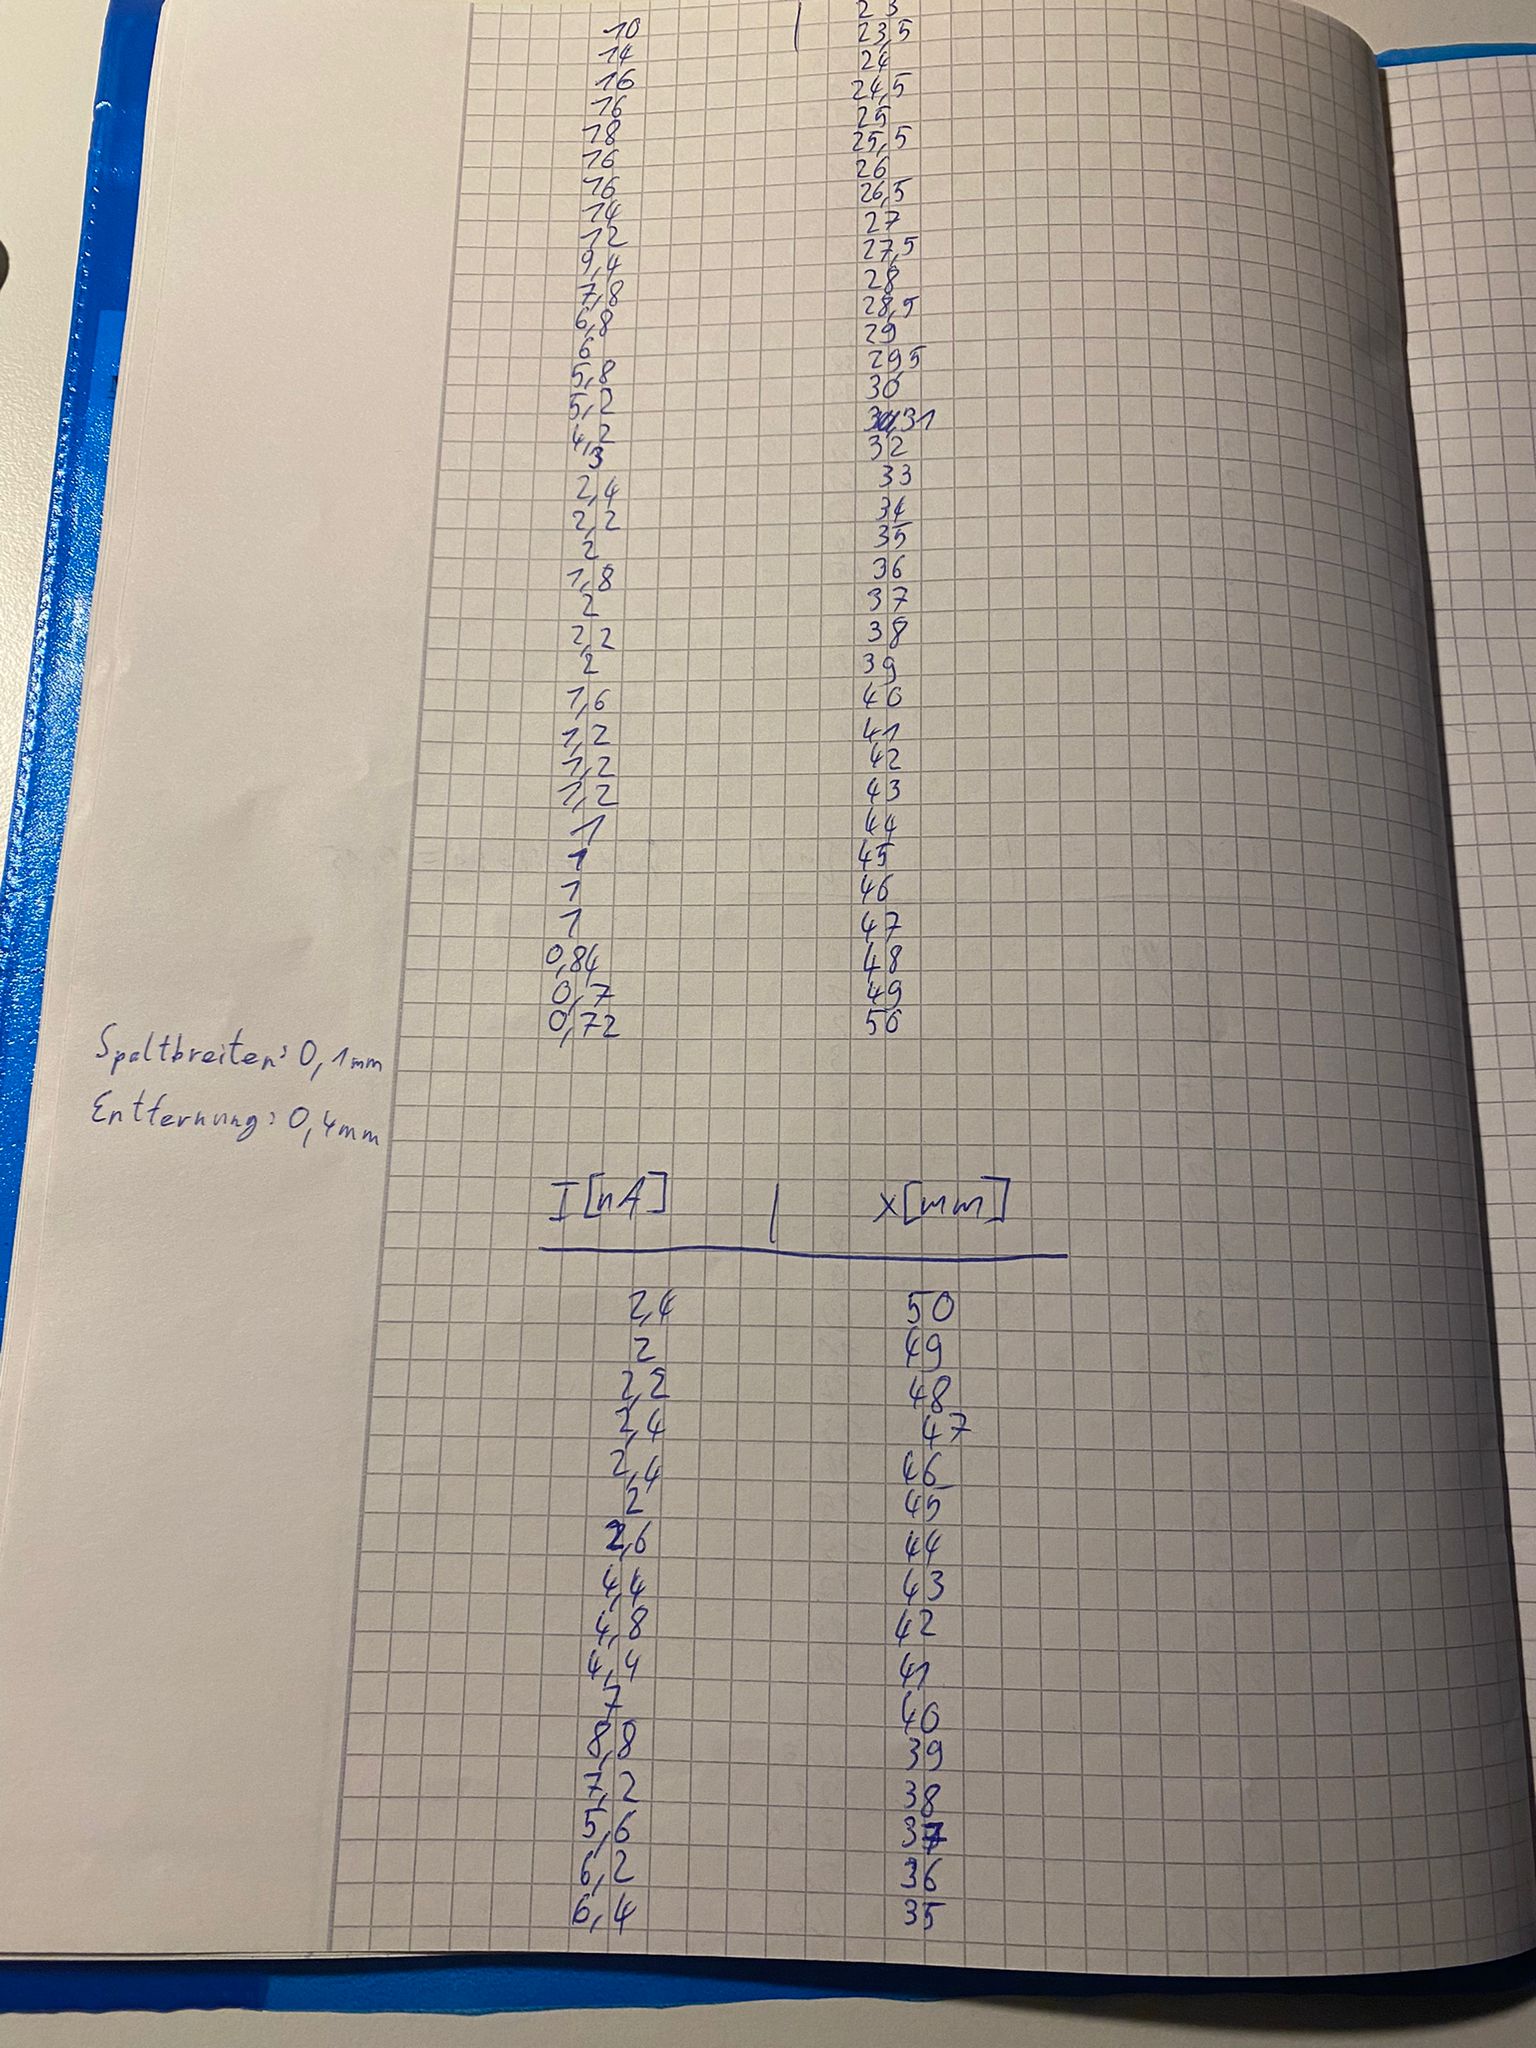 10 | 23
14 23,5
16 24
16 24,5
18 25
16 25,5
16 26
14 26,5
12 27
9,4 27,5
7,8 28
6,8 28,5
6 29
5,8 29,5
5,2 30
4,2 31
3 32
2,4 33
2,2 34
2 35
1,8 36
2 37
2,2 38
2 39
1,6 40
1,2 41
1,2 42
1,2 43
1 44
1 45
1 46
1 47
0,84 48
0,7 49
0,72 50
Spaltbreiten: 0,1mm
Entfernung: 0,4mm
I[nA] | x[mm]
2,4 50
2 49
2,2 48
2,4 47
2,4 46
2 45
2,6 44
4,4 43
4,8 42
4,4 41
7 40
8,8 39
7,2 38
5,6 37
6,2 36
6,4 35